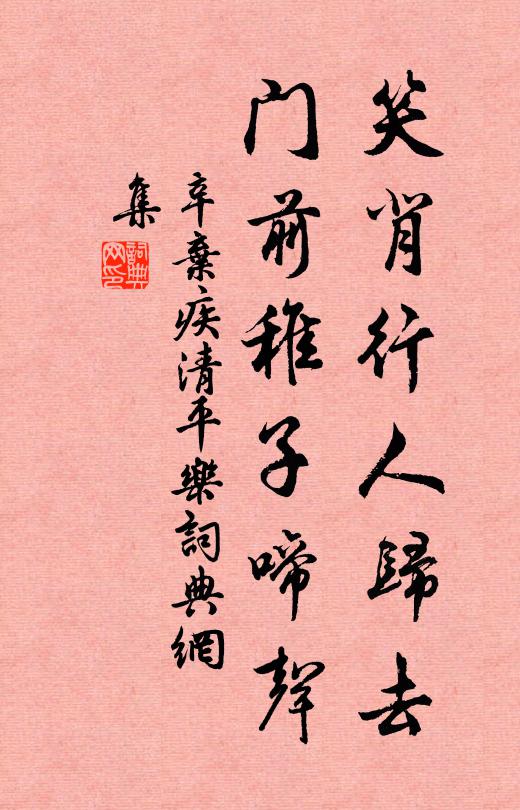 笑背行人歸去
门前稚子啼聲
辛棄疾清平樂詞典網
集
詞典
网印